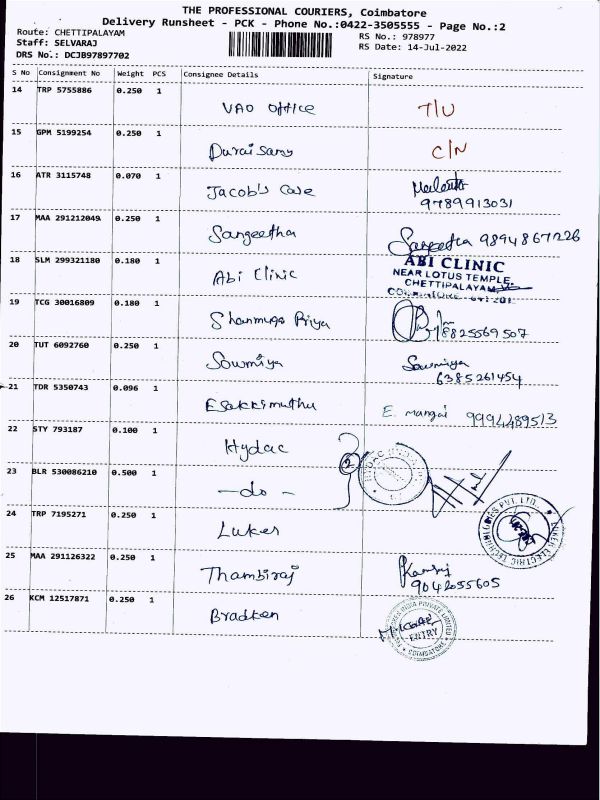 THE PROFESSIONAL COURIERS, Coimbatore
Delivery Runsheet - PCK - Phone No.:0422-3505555 - Page No.:2
Route: CHETTIPALAYAM
RS No.: 978977
Staff: SELVARAJ
RS Date: 14-Jul-2022
DRS No.: DCJB97897702
S No Consignment No Weight PCS Consignee Details Signature
14 TRP 5755886 0.250 1 VAO office T/U
15 GPM 5199254 0.250 1 Durai Samy C/N
16 ATR 3115748 0.070 1 Jacob's
9789913031
17 MAA 291212049 0.250 1 Sangeetha Sangeetha 9894867226
18 SLM 299321180 0.180 1 Abi Clinic ABI CLINIC
NEAR LOTUS TEMPLE
CHETTIPALAYAM
19 TCG 30016809 0.180 1 Shanmuga Priya 8825569507
20 TUT 6092760 0.250 1 Sowmiya Sowmiya
6385261454
21 TDR 5350743 0.096 1 Esakkimuthu E. mangai 9994489513
22 STY 793187 0.100 1 Hydac
2
23 BLR 530086210 0.500 1 - do -
24 TRP 7195271 0.250 1 Luker LUKER ELECTRIC TECHNOLOGIES PVT. LTD.
25 MAA 291126322 0.250 1 Thambiraj
9042055605
26 KCM 12517871 0.250 1 Bradken INDIA PRIVATE LIMITED
ENTRY
COIMBATORE